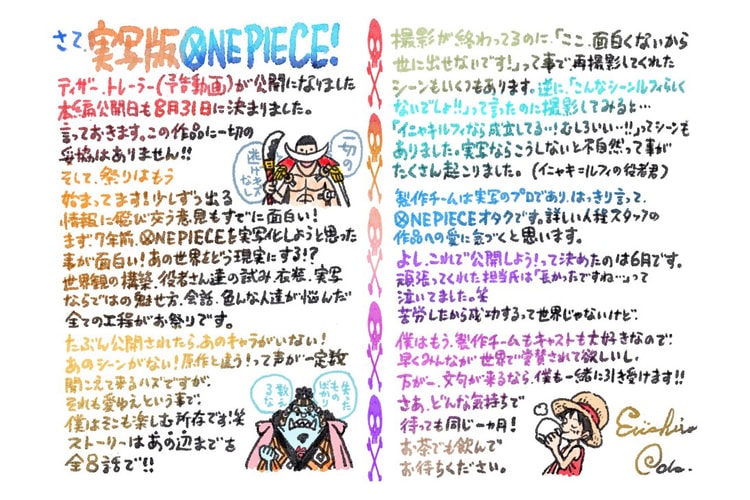 さて、実写版ONE PIECE!
ティザー、トレーラー(予告動画)が公開になりました
本編公開日も8月31日に決まりました。
言っておきます。この作品に一切の
妥協はありません!!
一切の
逃げキズ
なし
そして、祭りはもう
始まってます!少しずつ出る
情報に飛び交う意見もすでに面白い!
まず、7年前、ONE PIECEを実写化しようと思った
事が面白い!あの世界をどう現実にする!?
世界観の構築、役者さん達の試み、衣装、実写
ならではの魅せ方、会話、色んな人達が悩んだ
全ての工程がお祭りです。
たぶん公開されたら、あのキャラがいない!
あのシーンがない!原作と違う!って声が一定数
聞こえて来るハズですが、
それも愛ゆえという事で、
僕はそこも楽しむ所存です!笑
ストーリーはあの辺までを
全8話で!!
失った
ものの
ばかり
数え
るな
撮影が終わってるのに、「ここ、面白くないから
世に出せないです!」って事で再撮影してくれた
シーンもいくつもあります。逆に、「こんなシーンルフィらしく
ないでしょ!!」って言ったのに撮影してみると…
「イニャキルフィなら成立してる…!むしろいい…!!」ってシーンも
ありました。実写ならこうしないと不自然って事が
たくさん起こりました。(イニャキ=ルフィの役者君)
製作チームは実写のプロであり、はっきり言って、
ONE PIECEオタクです。詳しい人程スタッフの
作品への愛に気づくと思います。
よし、これで公開しよう!って決めたのは6月です。
頑張ってくれた担当氏は「長かったですね…」って
泣いてました。笑
苦労したから成功するって世界じゃないけど、
僕はもう、製作チームもキャストも大好きなので、
早くみんなが世界で賞賛されて欲しいし、
万が一、文句が来るなら、僕も一緒に引き受けます!!
さあ、どんな気持ちで
待っても同じ一ヵ月!
お茶でも飲んで
お待ちください。
Eiichiro
Oda.